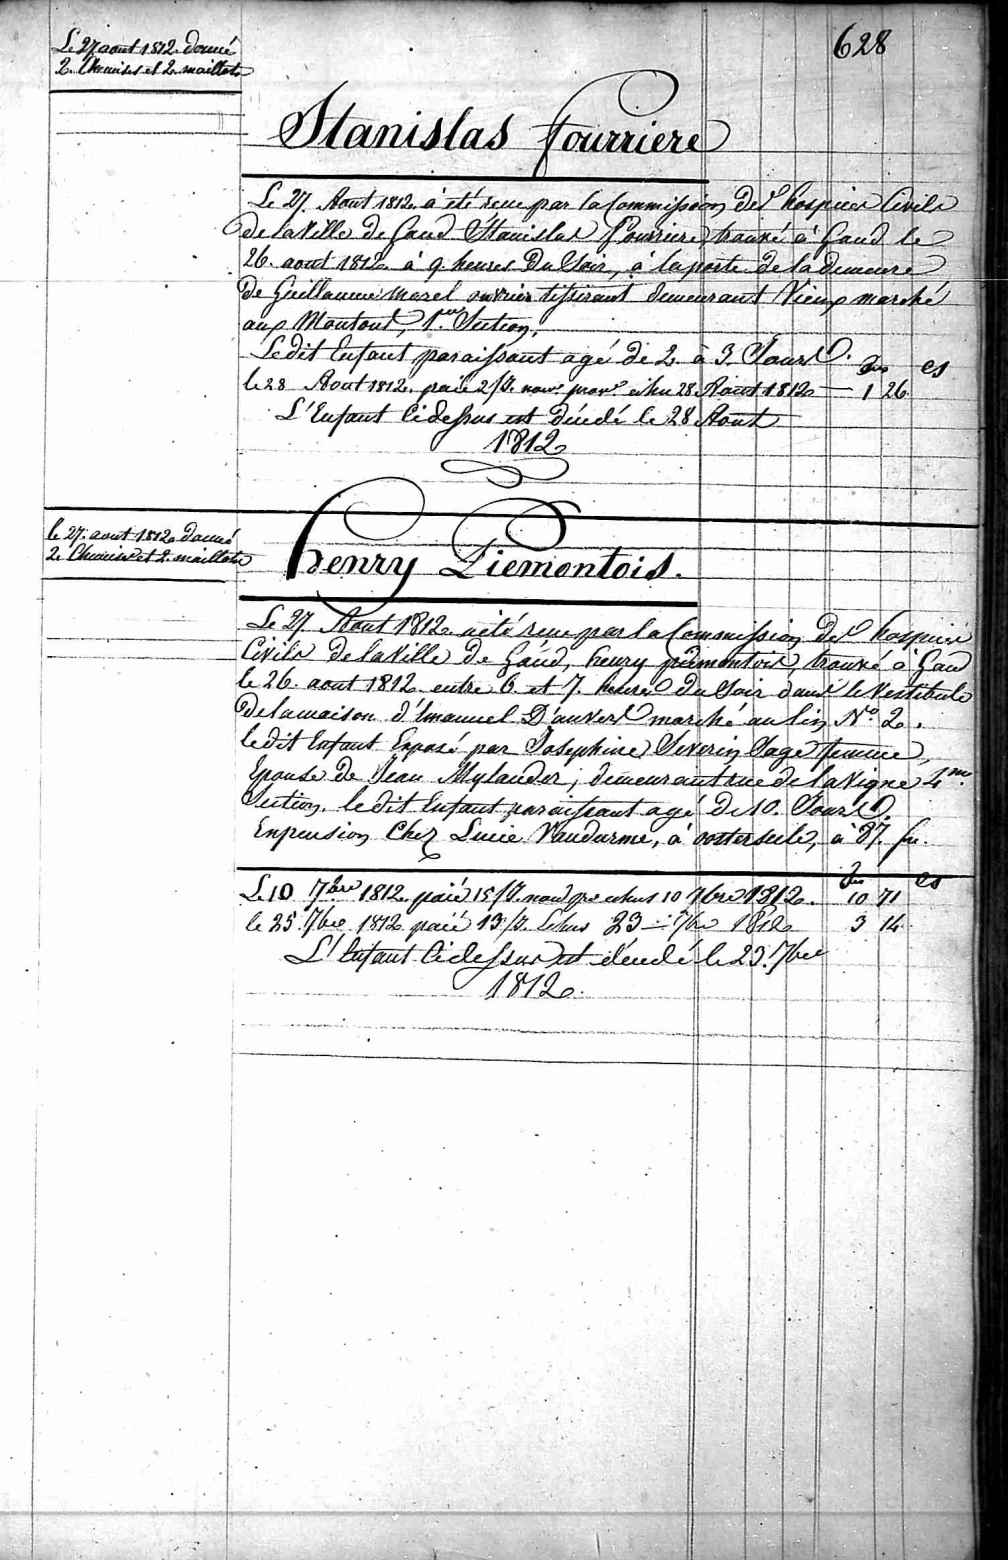 628
Le 27 aout 1812 donné
2 Chemises et 2 maillots
Stanislas Fourriere
Le 27 Aout 1812 a été reçu par la Commission des hospices Civils
de la Ville de Gand Stanislas Fourriere, trouvé à Gand le
26 aout 1812 à 9 heures Du Soir, à la porte de la demeure
De Guillaume Marel ouvrier tisserant demeurant Vieux marché
aux Moutons, 1re Section.
Le dit Enfant paraissant agé de 2 à 3 Jours.
fs cs
le 28 Aout 1812 paié 2/J. echu 28 Aout 1812 — 1 26
L'Enfant Cidessus est décédé le 28 Aout
1812
le 27 aout 1812 donné
2 Chemises et 2 maillots
henry Piemontois.
Le 27 Aout 1812 a été reçu par la Commission des hospices
Civils de la Ville de Gand, henry piemontois, trouvé à Gand
le 26 aout 1812 entre 6 et 7 heures Du Soir dans le Vestibule
de la maison d'Emanuel D'anvers marché au lin No 2.
le dit Enfant Exposé par Josephine Severin Sage femme,
Epouse de Jean Mylander, demeurant rue de la Vigne 4me
Section. le dit Enfant paraissant agé De 10 Jours.
En pension Chez Lucie Vandurme, à oosterseele, à 37 fr.
fs cs
Le 10 7bre 1812 paié 15/J. echus 10 7bre 1812. 10 71
le 25 7bre 1812 paié 13/J. Echus 23 7bre 1812 3 14
L'Enfant Cidessus est décédé le 23 7bre
1812.